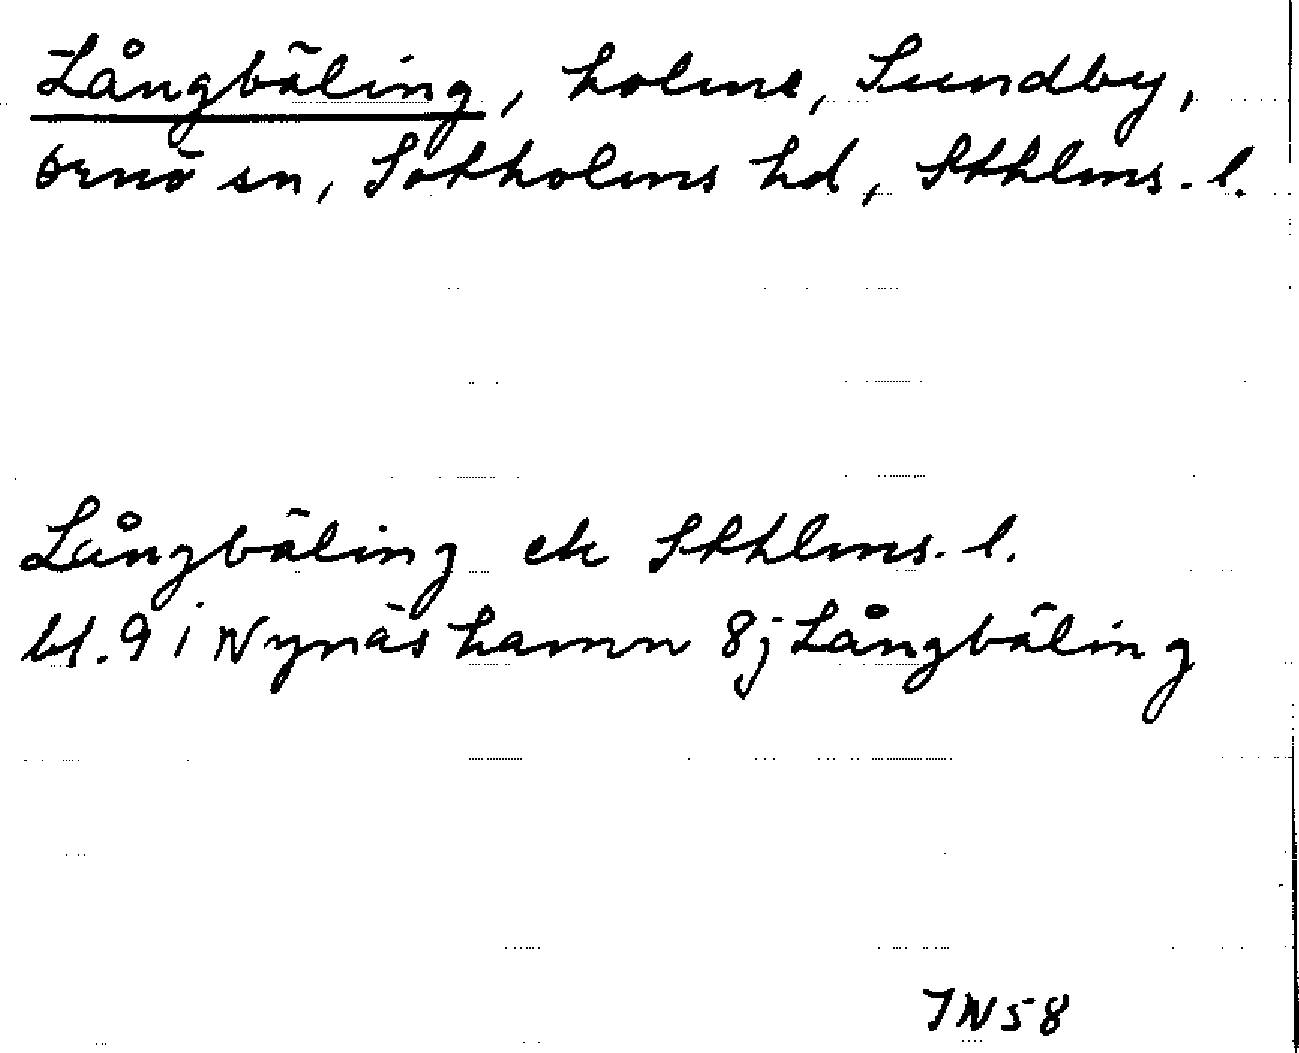 Långbäling, holme, Sundby,
Ornö sn, Sotholms hd, Sthlms. l.
Långbäling ek Sthlms. l.
bl. 9 i Nynäshamn 8j Långbäling
JN58